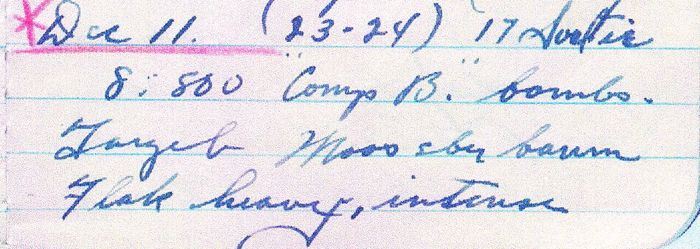 *Dec 11. (23-24) 17 Sortie
8: 500 "Comp B." bombs.
Target Moosbierbaum
Flak heavy, intense